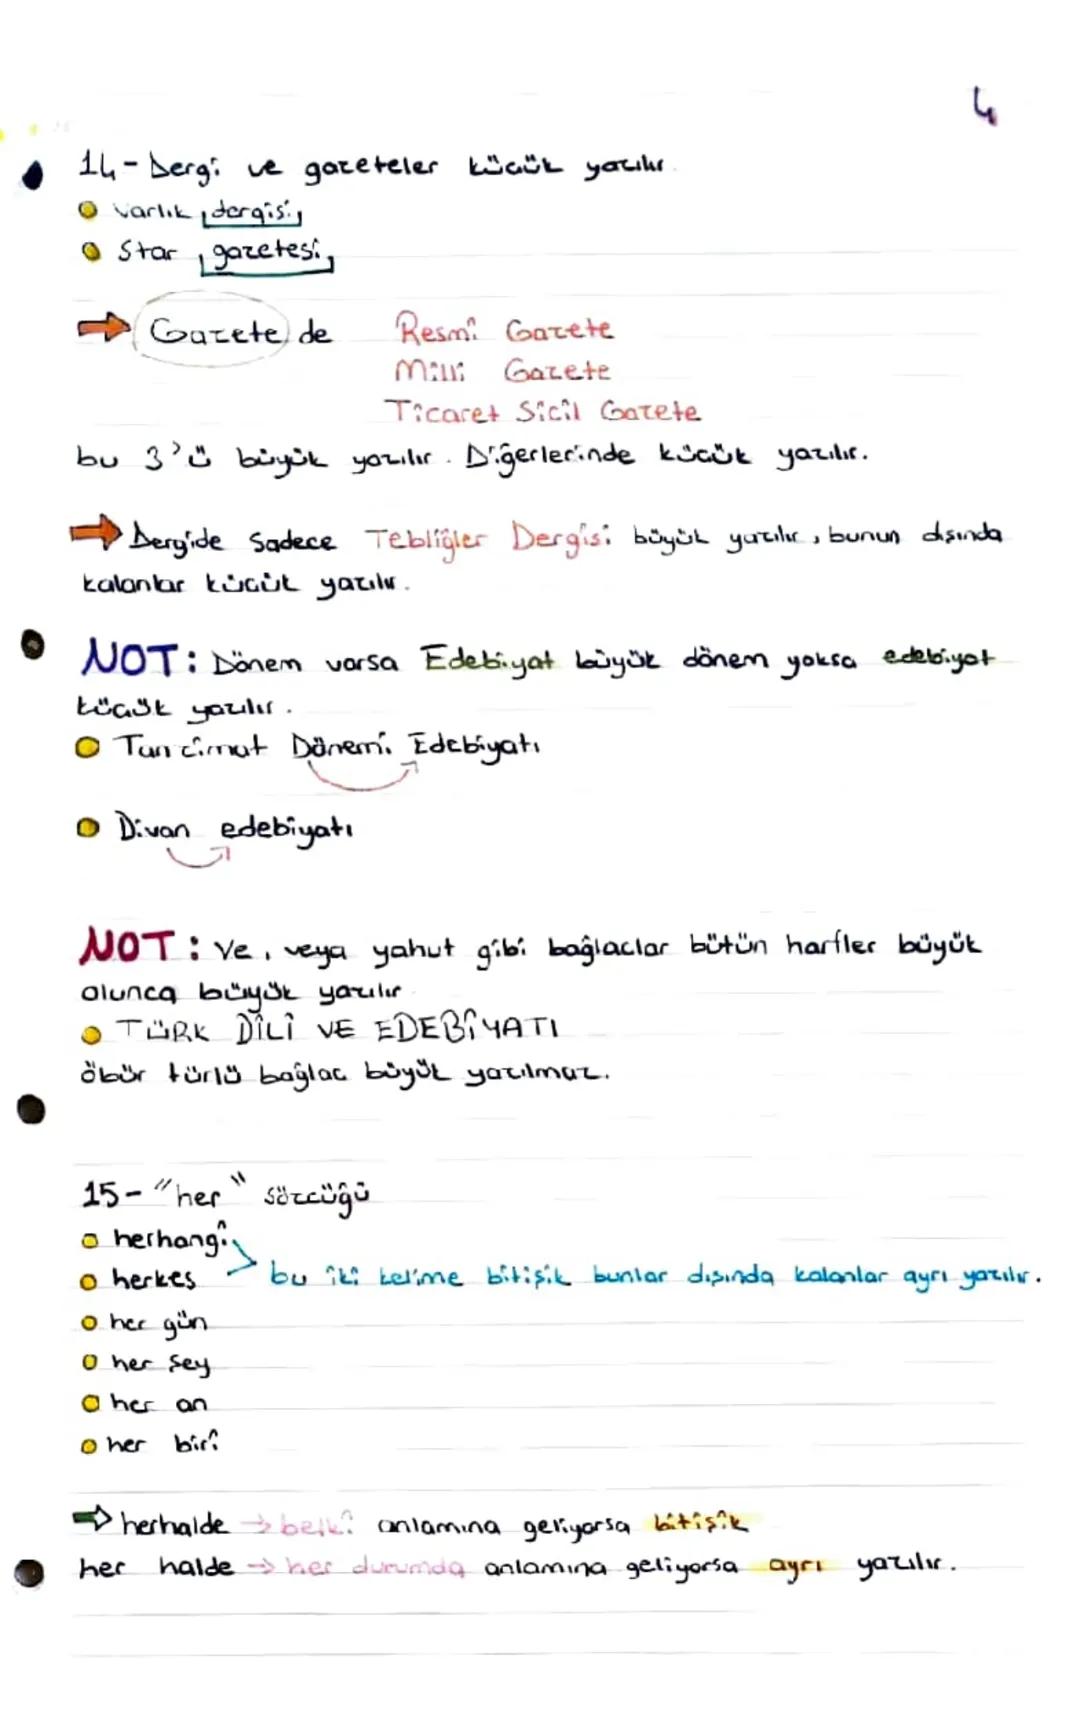 4
14- Dergi ve gazeteler küçük yazılır.
Varlık dergisi
Star gazetesi
Gazete de Resmi Gazete
Milli Gazete
Ticaret Sicil Gazete
bu 3'ü büyük yazılır. Diğerlerinde küçük yazılır.
Dergide Sadece Tebliğler Dergisi büyük yazılır, bunun dışında
kalanlar küçük yazılır.
NOT: Dönem varsa Edebiyat büyük dönem yoksa edebiyat
küçük yazılır.
Tanzimat Dönemi Edebiyatı
Divan edebiyatı
NOT: Ve, veya yahut gibi bağlaclar bütün harfler büyük
olunca büyük yazılır
TÜRK DİLİ VE EDEBİYATI
öbür türlü bağlac büyük yazılmaz.
15- "her" sözcüğü
herhangi
herkes bu iki kelime bitişik bunlar dışında kalanlar ayrı yazılır.
her gün
her şey
her an
her biri
herhalde → belki anlamına geliyorsa bitişik
her halde → her durumda anlamına geliyorsa ayrı yazılır.